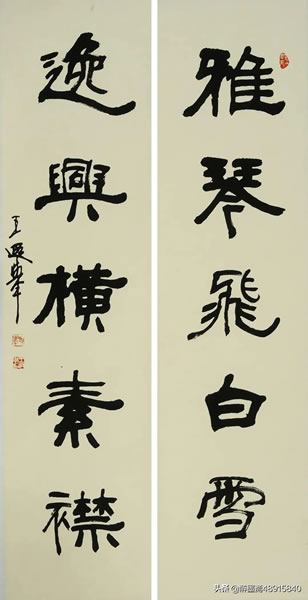 雅琴飛白雪
逸興橫素襟
王遐舉
头条